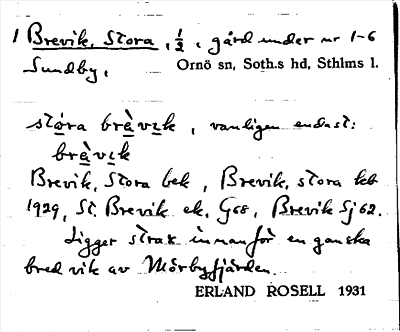 1 Brevik, Stora, ½, gård under nr 1-6
Sundby,
Ornö sn, Soth.s hd, Sthlms l.
stóra brὰvιk, vanligen endast:
brὰvιk
Brevik, Stora bek, Brevik, stora kb
1929, St. Brevik ek, G68, Brevik Sj 62.
Ligger strax innanför en ganska
bred vik av Mörbyfjärden.
ERLAND ROSELL 1931